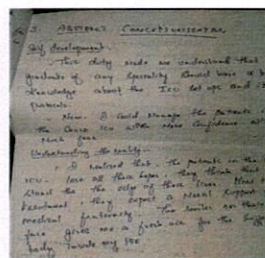 3. ABSTRACT CONCEPTUALISATION
Self development.
This duty made me understand that
graduate of any Speciality Should have a
knowledge about the ICU set ups and it's
protocols.
Now I could Manage the patients
the ICU with More Confidence
Much fear
Understanding the reality
I noticed that the patients in the
ICU lose all their hopes, they think that
the the edge of their lives.
treatment, they expect a Moral Support
medical fraternity. The smiles on their
face gives me a fresh air for the
body inside my PPE